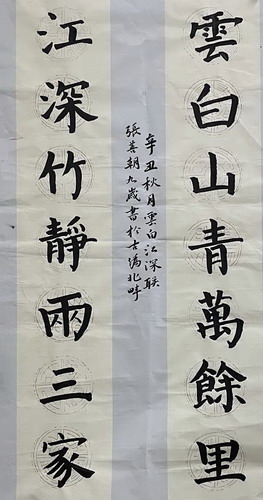 雲白山青萬餘里
江深竹靜兩三家
辛丑秋月雲白江深联
張其朝九歲書於古潏北畔